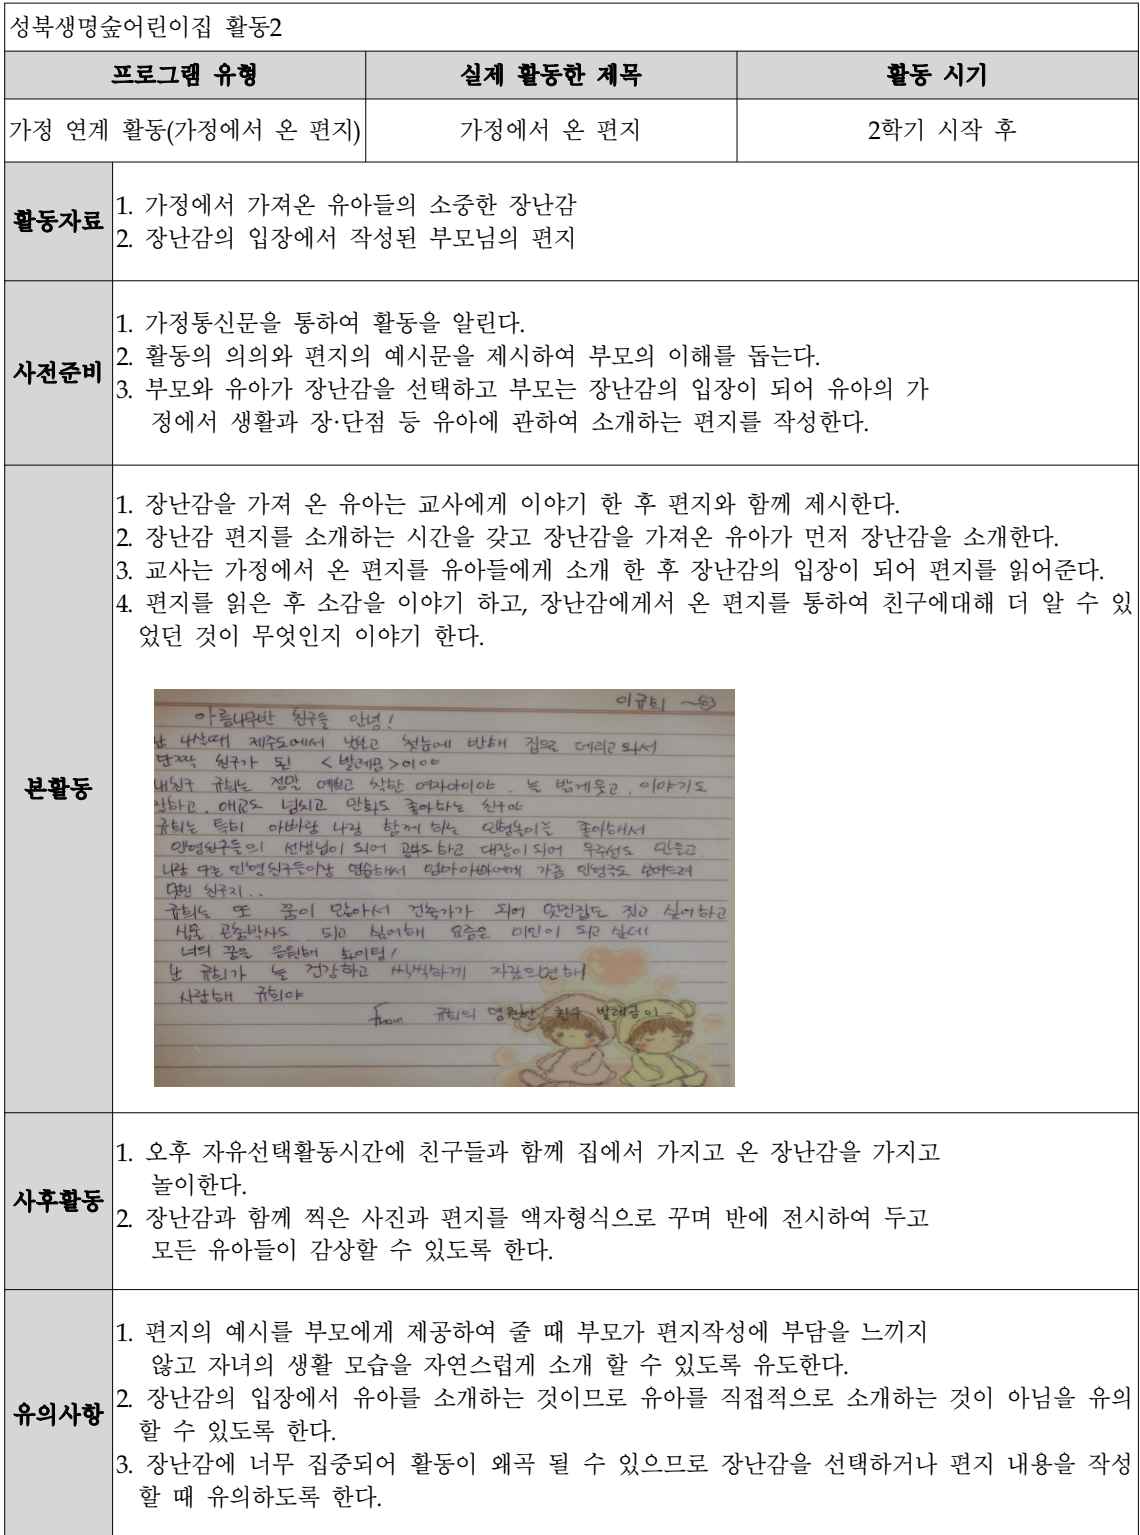 성북생명숲어린이집 활동2
프로그램 유형 실제 활동한 제목 활동 시기
가정 연계 활동(가정에서 온 편지) 가정에서 온 편지 2학기 시작 후
활동자료
1. 가정에서 가져온 유아들의 소중한 장난감
2. 장난감의 입장에서 작성된 부모님의 편지
사전준비
1. 가정통신문을 통하여 활동을 알린다.
2. 활동의 의의와 편지의 예시문을 제시하여 부모의 이해를 돕는다.
3. 부모와 유아가 장난감을 선택하고 부모는 장난감의 입장이 되어 유아의 가
정에서 생활과 장·단점 등 유아에 관하여 소개하는 편지를 작성한다.
본활동
1. 장난감을 가져 온 유아는 교사에게 이야기 한 후 편지와 함께 제시한다.
2. 장난감 편지를 소개하는 시간을 갖고 장난감을 가져온 유아가 먼저 장난감을 소개한다.
3. 교사는 가정에서 온 편지를 유아들에게 소개 한 후 장난감의 입장이 되어 편지를 읽어준다.
4. 편지를 읽은 후 소감을 이야기 하고, 장난감에게서 온 편지를 통하여 친구에대해 더 알 수 있
었던 것이 무엇인지 이야기 한다.
이규희
아름나무반 친구들 안녕!
난 4살때 제주도에서 났고 첫눈에 반해 집으로 데리고 와서
단짝 친구가 된 <발레곰>이야
내친구 규희는 정말 예쁘고 착한 여자아이야. 늘 밝게웃고. 이야기도
잘하고. 애교도 넘치고 만화도 좋아하는 친구야
규희는 특히 아빠랑 나랑 함께 하는 인형놀이를 좋아해서
인형친구들의 선생님이 되어 공부도 하고 대장이 되어 우주선도 만들고
나랑 다른 인형친구들이랑 연습해서 엄마아빠에게 가끔 인형극도 보여드려
멋진 친구지..
규희는 또 꿈이 많아서 건축가가 되어 멋진집도 짓고 싶어하고
식물 곤충박사도 되고 싶어해 요즘은 미인이 되고 싶데
너의 꿈을 응원해 화이팅!
난 규희가 늘 건강하고 씩씩하게 자랐으면해!
사랑해 규희야
from 규희의 영원한 친구 발레곰이-
사후활동
1. 오후 자유선택활동시간에 친구들과 함께 집에서 가지고 온 장난감을 가지고
놀이한다.
2. 장난감과 함께 찍은 사진과 편지를 액자형식으로 꾸며 반에 전시하여 두고
모든 유아들이 감상할 수 있도록 한다.
유의사항
1. 편지의 예시를 부모에게 제공하여 줄 때 부모가 편지작성에 부담을 느끼지
않고 자녀의 생활 모습을 자연스럽게 소개 할 수 있도록 유도한다.
2. 장난감의 입장에서 유아를 소개하는 것이므로 유아를 직접적으로 소개하는 것이 아님을 유의
할 수 있도록 한다.
3. 장난감에 너무 집중되어 활동이 왜곡 될 수 있으므로 장난감을 선택하거나 편지 내용을 작성
할 때 유의하도록 한다.